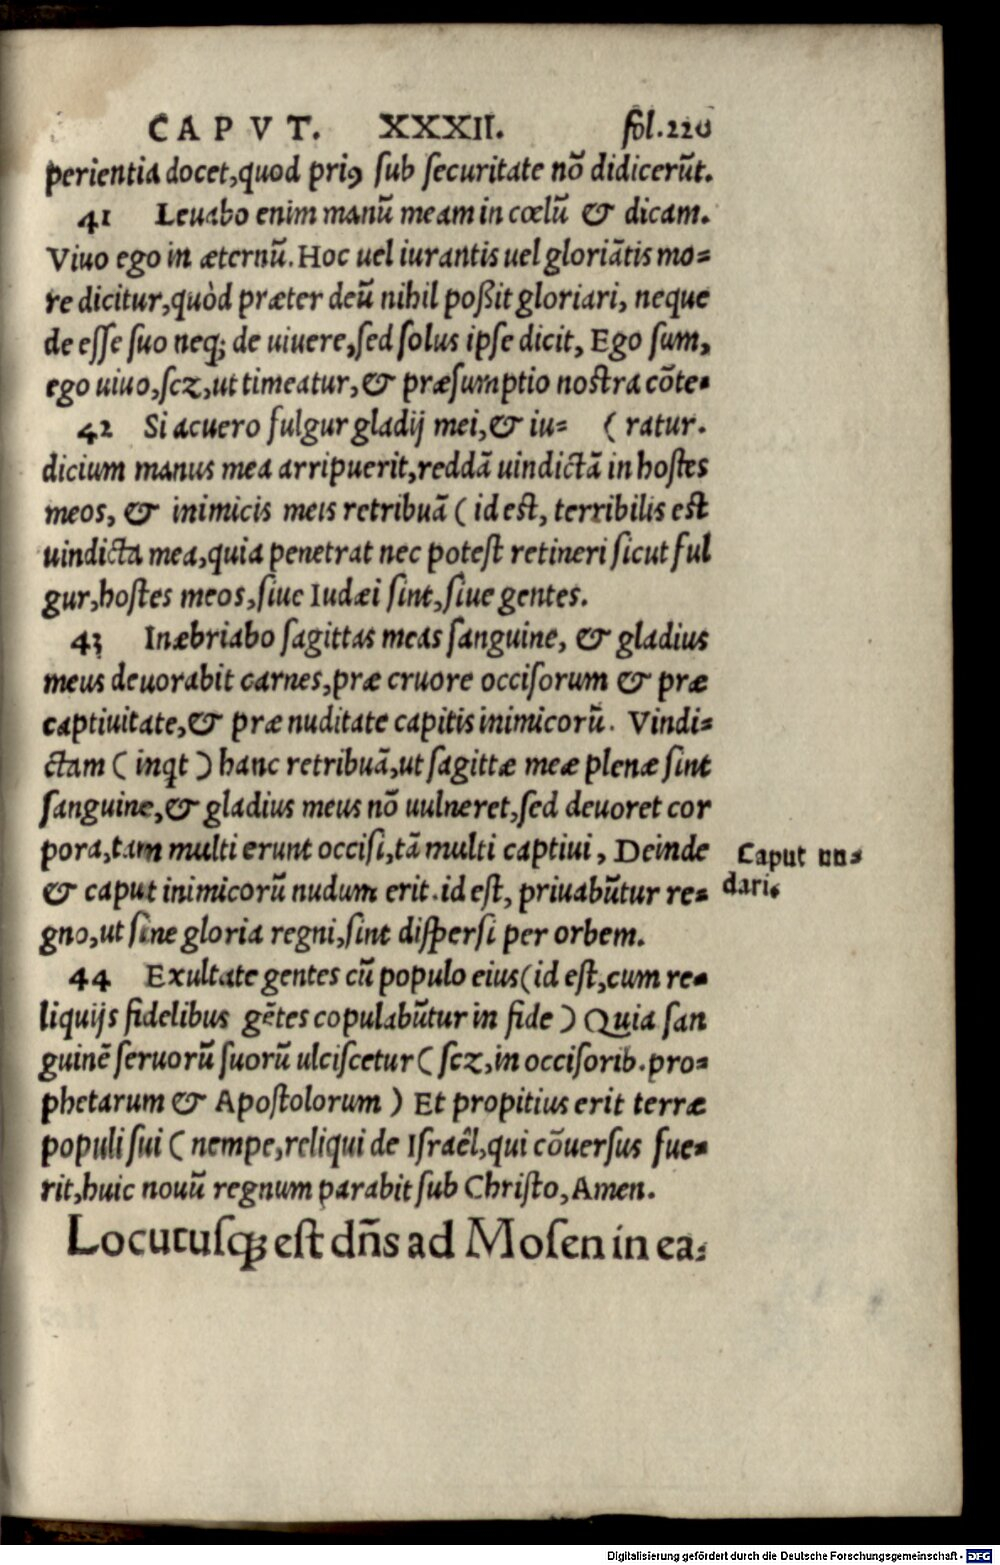 CAPVT. XXXII. fol.220
perientia docet,quod priꝰ sub securitate nō didicerūt.
41 Leuabo enim manū meam in cœlū & dicam.
Viuo ego in æternū. Hoc uel iurantis uel gloriātis mo=
re dicitur,quòd præter deū nihil poßit gloriari, neque
de esse suo neq; de uiuere,sed solus ipse dicit, Ego sum,
ego uiuo,scz,ut timeatur,& præsumptio nostra cōte=
42 Si acuero fulgur gladij mei,& iu= ( ratur.
dicium manus mea arripuerit,reddā uindictā in hostes
meos, & inimicis meis retribuā ( id est, terribilis est
uindicta mea,quia penetrat nec potest retineri sicut ful
gur,hostes meos,siue Iudæi sint,siue gentes.
43 Inæbriabo sagittas meas sanguine, & gladius
meus deuorabit carnes,præ cruore occisorum & præ
captiuitate,& præ nuditate capitis inimicorū. Vindi=
ctam ( inqt ) hanc retribuā,ut sagittæ meæ plenæ sint
sanguine,& gladius meus nō uulneret,sed deuoret cor
pora,tam multi erunt occisi,tā multi captiui, Deinde
& caput inimicorū nudum erit.id est, priuabūtur re=
gno,ut sine gloria regni,sint dispersi per orbem.
Caput nu=
dari.
44 Exultate gentes cū populo eius(id est,cum re=
liquijs fidelibus gētes copulabūtur in fide ) Quia san
guinē seruorū suorū ulciscetur ( scz,in occisorib.pro=
phetarum & Apostolorum ) Et propitius erit terræ
populi sui ( nempe,reliqui de Israêl,qui cōuersus fue=
rit,huic nouū regnum parabit sub Christo,Amen.
Locutusq; est dñs ad Mosen in ea=
Digitalisierung gefördert durch die Deutsche Forschungsgemeinschaft - DFG